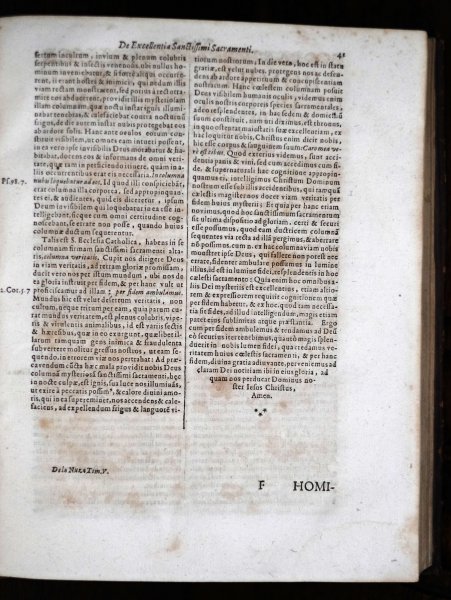 De Excellentia Sanctissimi Sacramenti.
41
sertum incultum, invium & plenum colubris
serpentibus & insectis venenosis, ubi nullus ho-
minum inveniebatur, & si forte aliqui occurre-
rent, ii erant hostes & inimici, qui nondum illis
viam rectam monstrarent, sed potius à recto tra-
mite eos abducerent, providit illis mysteriosam
illam columnam, quæ noctu instar ignis illumi-
nabat tenebras, & calefaciebat contra nocturnū
frigus, de die autem instar nubis protegebat eos
ab ardore solis. Hanc ante oculos eorum con-
stituit visibilem, ut omnes eam intueri possent,
in eo vero ipse invisibilis Deus morabatur & ha-
bitabat, docens eos & informans de omni veri-
tate quæ tam in petsiciendo itinere, quam in a-
liis occurrentibus erat eis necessaria. In columna
nubis loquebatur ad eos. Id quod illi conspiciebāt,
erat columna illa corporea, sed appropinquan-
tes ei, & audientes, quid eis diceretur, ipsum
Deum invisibilem qui loquebatur in ea esse in-
telligebant, sicque cum omni certitudine cog-
noscebant, se errare non posse, quando huius
columnæ ductum sequerentur.
Talis est S. Ecclesia Catholica, habens in se
columnam firmam sanctissimi sacramenti alta-
ris, columna veritatis. Cupit nos dirigere Deus
in viam veritatis, ad terram gloriæ promissam, a-
ducit nos per desertum huius mundi, ubi nos de
ea gloria instruit per fidem, & per hanc vult ut
proficiscamur ad illam; per fidem ambulemus.
Mundus hic est velut desertum veritatis, non
cultum, neque tritum per eam, quia parum cu-
rat mundus veritatem, est plenus colubris, vipe-
ris & virulentis animalibus, id est variis sectis
& hæresibus, quæ eorum qui errant, & qui ebarila-
larum tamquam gens inimica & fraudulenta
subvertere molitur gressus nostros, ut eam se-
quendo, in errorem viæ nos pertrahat: Ad præ-
cavendum dicta hæc mala providit nobis Deus
columnā mysteriosā sanctissimi sacramenti, hęc
in nocte culpæ, est ignis, sua luce nos illuminās,
ut exire à peccatis possim9, & calore divini amo-
ris, qui in ea superimines, nos accendens & cale-
faciens, ad expellendum frigus & languorē vi-
Psal. 98. 7.
2. Cor. 5. 7
De la Nuza Tom. V.
tiorum nostrorum. In die vero, hoc est in statu
gratiæ, est velut nubes, protegens nos ac defen-
dens ab ardore appetituum & concupiscentiarum
nostrarum. Hanc cœlestem columnam posuit
Deus visibilem humanis oculis, videmus enim
oculis nostris corporeis species sacramentales,
adeo respicientes, in hac sedem & domicilium
suum constituit, tum uti dicimus, est thronus,
in quo ostentat maiestatis suæ excellentiam, ex
hac loquitur nobis. Christus enim dicit nobis,
hic esse corpus & sanguinem suum: Caro mea ve-
re est cibus. Quod exterius videmus, sunt acci-
dentia panis & vini, sed cum accedimus cum fi-
de, & supernaturali hac cognitione appropin-
quamus ei, intelligimus Christum Dominum
nostrum sub illis accidentibus, qui tamquam
cælestis magister docet viam veritatis per fi-
dem huius mysterii; Et quia per hanc eriam,
novimus, quod hoc sanctissimum sacramentum
sit ultima dispositio ad gloriam. certi & securi
esse possumus, quod eam ductricem columnam
sequentes via recta ad illā pergimus, & aberrare
nō possumus, cum n. ex hac columna viam nobis
monstret ipse Deus, qui fallere non potest nec
errare, fidenter ambulare possumus eo lumine
illius, id est in lumine fidei, resplendentis in hoc
cœlesti sacramento: Quia enim hoc omnibus a-
liis Dei mysteriis est excellentius, etiam altio-
rem & expressiorem requirit cognitionem quæ
per fidem habetur, & ex hoc, quod eam necessa-
tia sic fides, ad illud intelligendum, magis etiam
patet eius sublimitas atque præstantia. Ergo
cum per fidem ambulemus & tendamus ad Deū
eò securius iter tendimus, quantò magis splen-
duerit in nobis lumen fidei, qua credamus ve-
ritatem huius cœlestis sacramenti, & per hanc
fidem, divina gratia adiuvante, perveniamus ad
claram Dei notitiam ibi in eius gloria, ad
quam nos perducat Dominus no-
ster Iesus Christus,
Amen.
F HOMI-